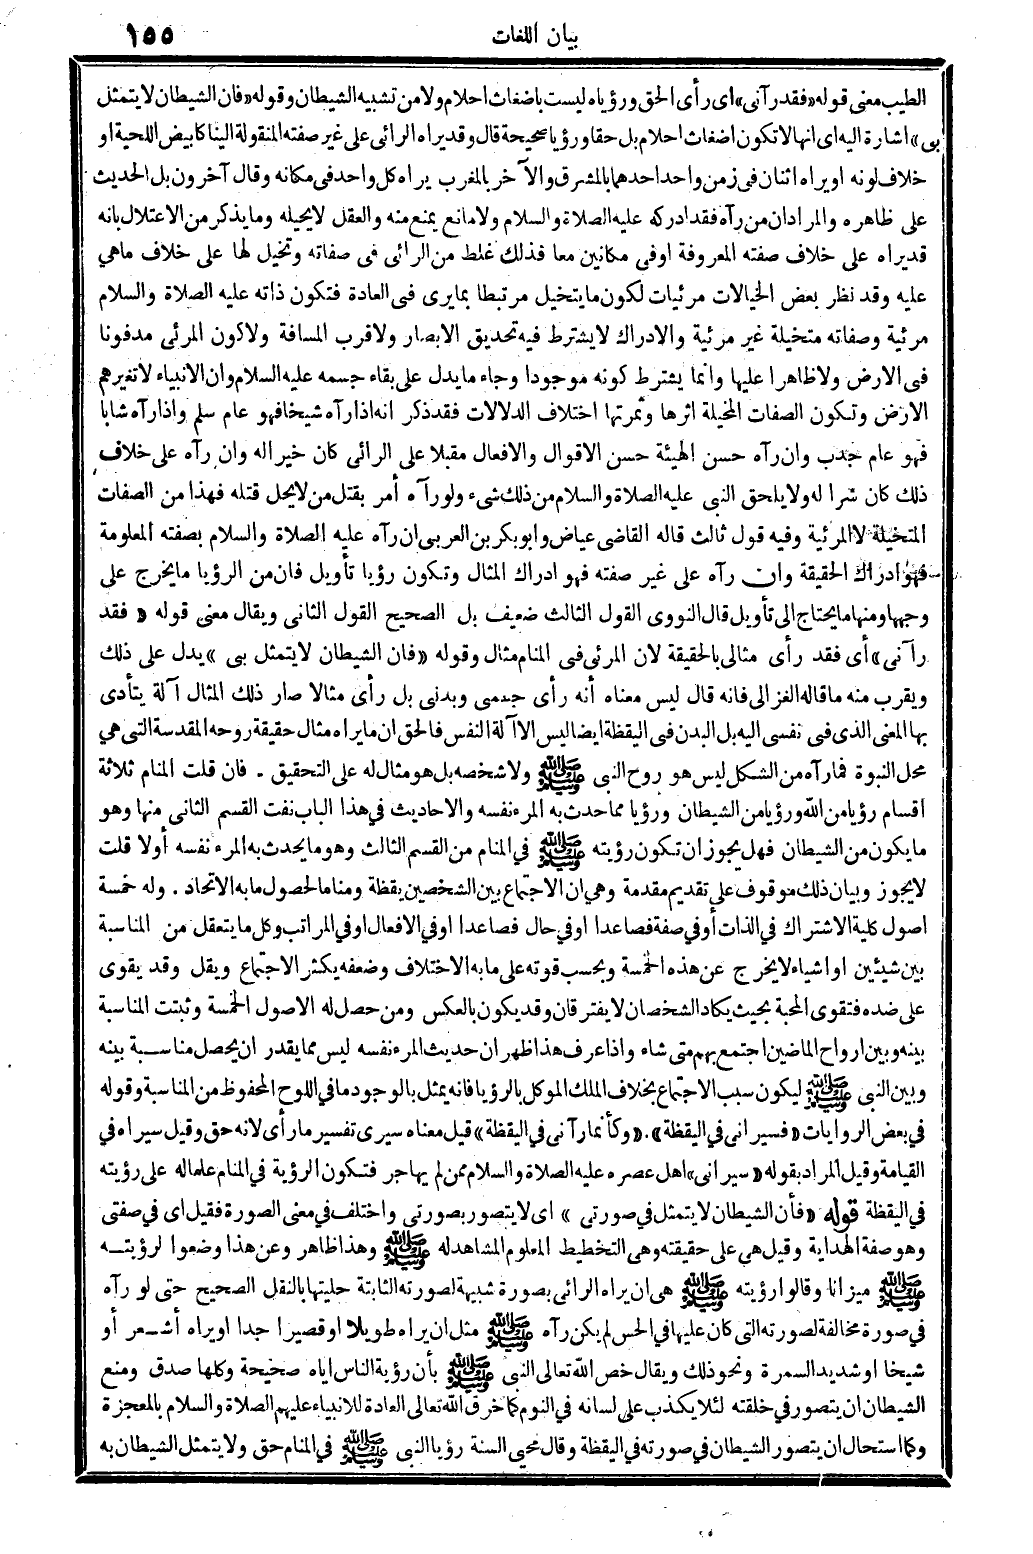 بيان اللغات
١٥٥
الطيب معنى قوله «فقد رآنى» اى رأى الحق ورؤياه ليست باضغاث احلام ولا من تشبيه الشيطان وقوله «فان الشيطان لا يتمثل
بى» اشارة اليه اى انها لا تكون اضغاث احلام بل حقا ورؤيا صحيحة قال وقد يراه الرائى على غير صفته المنقولة الينا كابيض اللحية او
خلاف لونه او يراه اثنان فى زمن واحد احدهما بالمشرق والآخر بالمغرب يراه كل واحد فى مكانه وقال آخرون بل الحديث
على ظاهره والمراد ان من رآه فقد ادركه عليه الصلاة والسلام ولا مانع يمنع منه والعقل لا يحيله وما يذكر من الاعتلال بانه
قد يراه على خلاف صفته المعروفة او فى مكانين معا فذلك غلط من الرائى فى صفاته وتخيل لها على خلاف ما هى
عليه وقد نظر بعض الخيالات مرئيات لكون ما يتخيل مرتبطا بما يرى فى العادة فتكون ذاته عليه الصلاة والسلام
مرئية وصفاته متخيلة غير مرئية والادراك لا يشترط فيه تحديق الابصار ولا قرب المسافة ولا كون المرئى مدفونا
فى الارض ولا ظاهرا عليها وانما يشترط كونه موجودا وجاء ما يدل على بقاء جسمه عليه السلام وان الانبياء لا تغيرهم
الارض وتكون الصفات المخيلة اثرها وثمرتها اختلاف الدلالات فقد ذكر انه اذا رآه شيخا فهو عام سلم واذا رآه شابا
فهو عام جدب وان رآه حسن الهيئة حسن الاقوال والافعال مقبلا على الرائى كان خيرا له وان رآه على خلاف
ذلك كان شرا له ولا يلحق النبى عليه الصلاة والسلام من ذلك شىء ولو رآه أمر بقتل من لا يحل قتله فهذا من الصفات
المتخيلة لا المرئية وفيه قول ثالث قاله القاضى عياض وابو بكر بن العربى ان رآه عليه الصلاة والسلام بصفته المعلومة
فهو ادراك الحقيقة وان رآه على غير صفته فهو ادراك المثال وتكون رؤيا تأويل فان من الرؤيا ما يخرج على
وجهها ومنها ما يحتاج الى تأويل قال النووى القول الثالث ضعيف بل الصحيح القول الثانى ويقال معنى قوله «فقد
رآنى» أى فقد رأى مثالى بالحقيقة لان المرئى فى المنام مثال وقوله «فان الشيطان لا يتمثل بى» يدل على ذلك
ويقرب منه ما قاله الغزالى فانه قال ليس معناه أنه رأى جسمى وبدنى بل رأى مثالا صار ذلك المثال آلة يتأدى
بها المعنى الذى فى نفسى اليه بل البدن فى اليقظة ايضا ليس الا آلة النفس فالحق ان ما يراه مثال حقيقة روحه المقدسة التى هى
محل النبوة فما رآه من الشكل ليس هو روح النبى ﷺ ولا شخصه بل هو مثال له على التحقيق . فان قلت المنام ثلاثة
اقسام رؤيا من الله ورؤيا من الشيطان ورؤيا مما حدث به المرء نفسه والاحاديث فى هذا الباب نفت القسم الثانى منها وهو
ما يكون من الشيطان فهل يجوز ان تكون رؤيته ﷺ في المنام من القسم الثالث وهو ما يحدث به المرء نفسه أو لا قلت
لا يجوز وبيان ذلك موقوف على تقديم مقدمة وهى ان الاجتماع بين الشخصين يقظة ومناما لحصول ما به الاتحاد . وله خمسة
اصول كلية الاشتراك في الذات أو في صفة فصاعدا او في حال فصاعدا او في الافعال او في المراتب وكل ما يتعقل من المناسبة
بين شيئين او اشياء لا يخرج عن هذه الخمسة وبحسب قوته على ما به الاختلاف وضعفه يكثر الاجتماع ويقل وقد يقوى
على ضده فتقوى المحبة بحيث يكاد الشخصان لا يفترقان وقد يكون بالعكس ومن حصل له الاصول الخمسة وثبتت المناسبة
بينه وبين ارواح الماضين اجتمع بهم متى شاء واذا عرف هذا ظهر ان حديث المرء نفسه ليس مما يقدر ان يحصل مناسبة بينه
وبين النبى ﷺ ليكون سبب الاجتماع بخلاف الملك الموكل بالرؤيا فانه يمثل بالوجود ما في اللوح المحفوظ من المناسبة وقوله
في بعض الروايات «فسيرانى في اليقظة». «وكأنما رآنى في اليقظة» قيل معناه سيرى تفسير ما رأى لانه حق وقيل سيراه في
القيامة وقيل المراد بقوله «سيرانى» اهل عصره عليه الصلاة والسلام ممن لم يهاجر فتكون الرؤية في المنام علما له على رؤيته
في اليقظة قوله «فأن الشيطان لا يتمثل في صورتى» اى لا يتصور بصورتى واختلف في معنى الصورة فقيل اى في صفتى
وهو صفة الهداية وقيل هى على حقيقته وهى التخطيط المعلوم المشاهد له ﷺ وهذا ظاهر وعن هذا وضعوا لرؤيته
ﷺ ميزانا وقالوا رؤيته ﷺ هى ان يراه الرائى بصورة شبيهة لصورته الثابتة حليتها بالنقل الصحيح حتى لو رآه
في صورة مخالفة لصورته التى كان عليها في الحس لم يكن رآه ﷺ مثل ان يراه طويلا او قصيرا جدا او يراه أشعر أو
شيخا او شديد السمرة ونحو ذلك ويقال خص الله تعالى النبى ﷺ بأن رؤية الناس اياه صحيحة وكلها صدق ومنع
الشيطان ان يتصور في خلقته لئلا يكذب على لسانه في النوم كما خرق الله تعالى العادة للانبياء عليهم الصلاة والسلام بالمعجزة
وكما استحال ان يتصور الشيطان في صورته في اليقظة وقال محيى السنة رؤيا النبى ﷺ في المنام حق ولا يتمثل الشيطان به